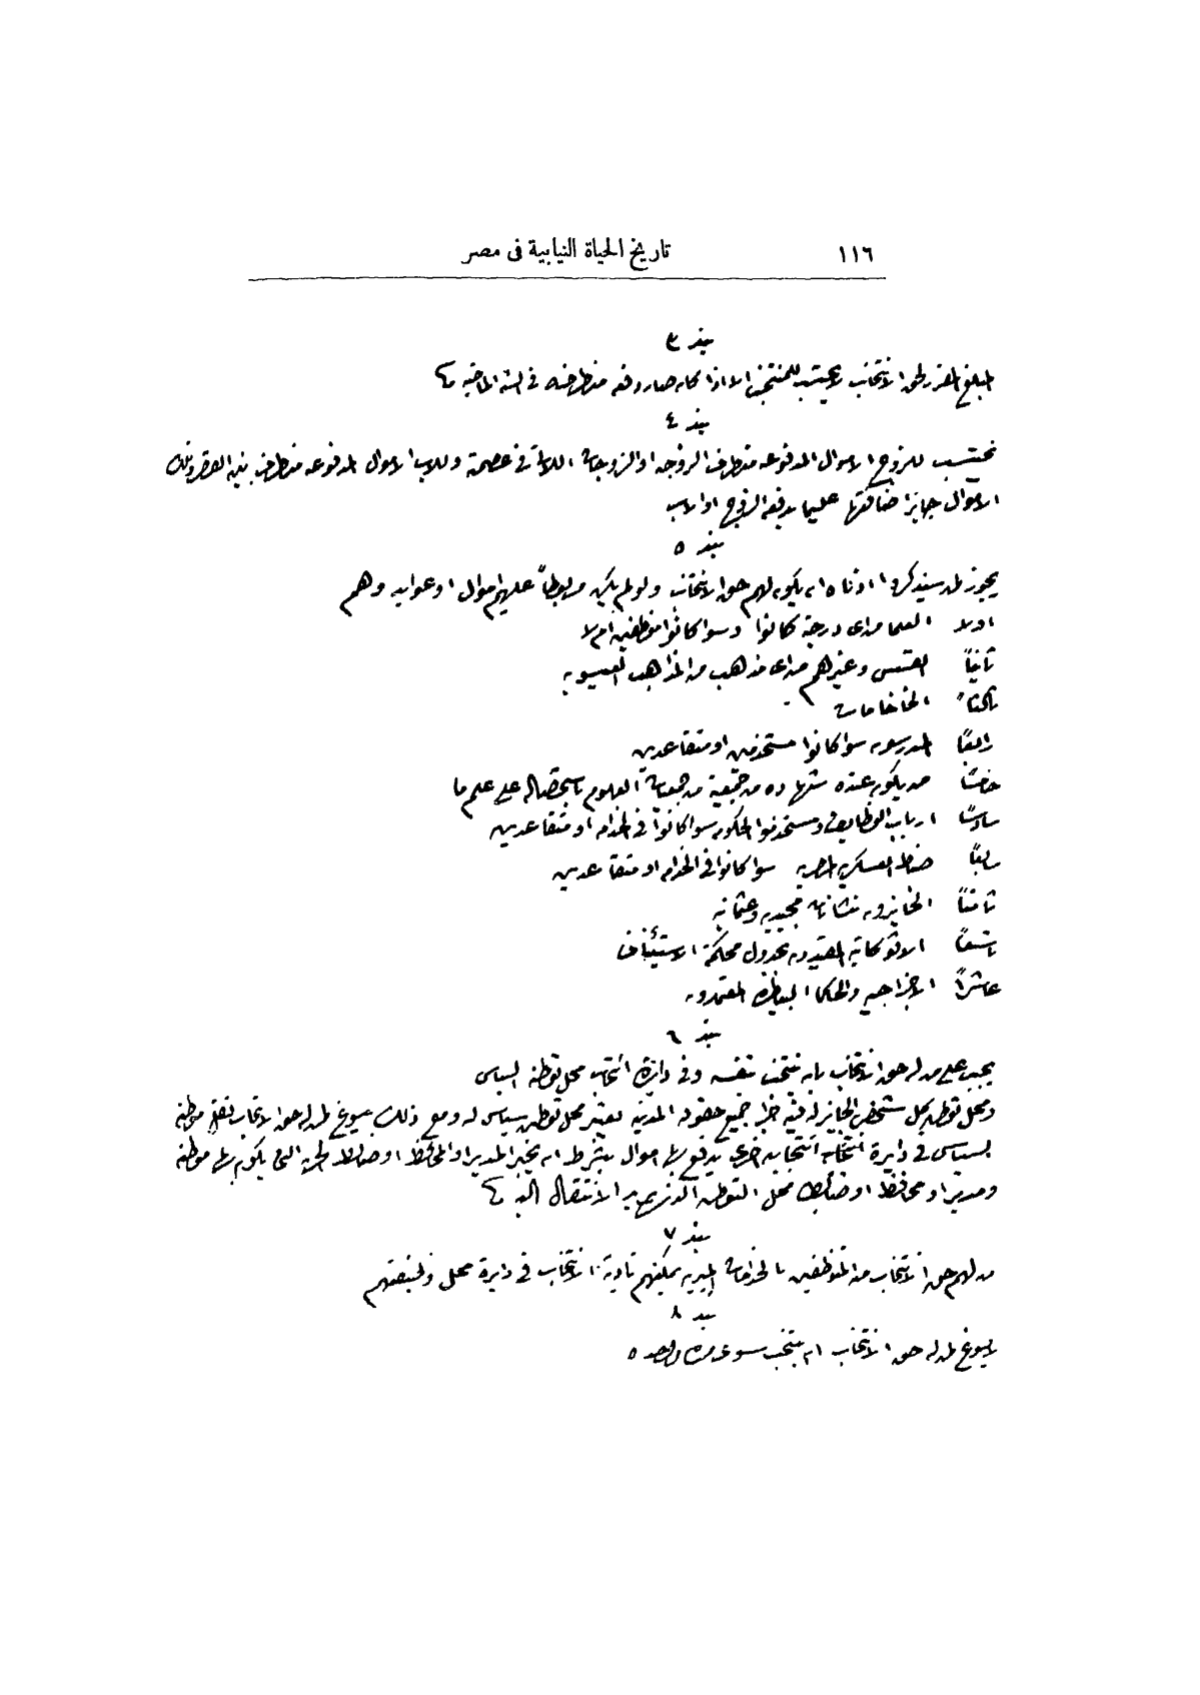 ١١٦ تاريخ الحياة النيابية فى مصر
بند ٣
المبلغ المقرر لحق الانتخاب لا يحتسب للمنتخب الا اذا كان صار دفعه من طرفه في السنة الماضيه
بند ٤
تحتسب للزوج الاموال المدفوعه من طرف الزوجه او الزوجات اللاتي في عصمته وللاب الاموال المدفوعه من طرف بنيه القصر وتلك
الاموال جايز اضافتها على ما يدفعه الزوج او الاب
بند ٥
يجوز لمن سيذكروا ادناه ان يكون لهم حق الانتخاب ولو لم يكن مربوطاً عليهم اموال او عوايد وهم
اولا العلما من اى درجة كانوا وسوا كانوا موظفين ام لا
ثانياً القسس وغيرهم من اى مذهب من المذاهب العيسويه
ثالثاً الحاخامات
رابعاً المدرسون سوا كانوا مستخدمين او متقاعدين
خامساً من يكون عنده شهاده من جمعية من جمعيات العلوم باستحصاله على علم ما
سادساً ارباب الوظايف ومستخدموا الحكومه سوا كانوا في الخدامه او متقاعدين
سابعاً ضباط العسكريه المصريه سوا كانوا في الخدامه او متقاعدين
ثامناً الحايزون نشانات مجيديه وعثمانيه
تاسعاً الافوكاتيه المقيدون بجدول محكمة الاستيناف
عاشراً الاجزاجيه والحكما البيطريه المعتمدون
بند ٦
يجب على من له حق الانتخاب بان ينتخب بنفسه وفي دائرة انتخاب محل توطنه السياسي
ومحل توطن كل شخص الجايز له فيه اجرا جميع حقوقه المدنيه يعتبر محل توطن سياسي له ومع ذلك يسوغ لمن له حق الانتخاب نقل موطنه
السياسي في دايرة انتخابيه اخرى يدفع بها اموال بشرط ان يخبر المدير او المحافظ او ضابط الجهة التي يكون بها موطنه
ومدير او محافظ او ضابط محل التوطن الذي يريد الانتقال اليه
بند ٧
من لهم حق الانتخاب من المتوظفين بالخدامات الميريه يمكنهم تادية الانتخاب في دايرة محل وظيفتهم
بند ٨
لا يسوغ لمن له حق الانتخاب ان ينتخب سوى مره واحده